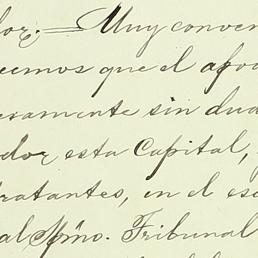 dor.— Muy conven
eemos que el apo
eramente sin dud
dor esta Capital,
tratantes, en el es
al Spmo. Tribunal